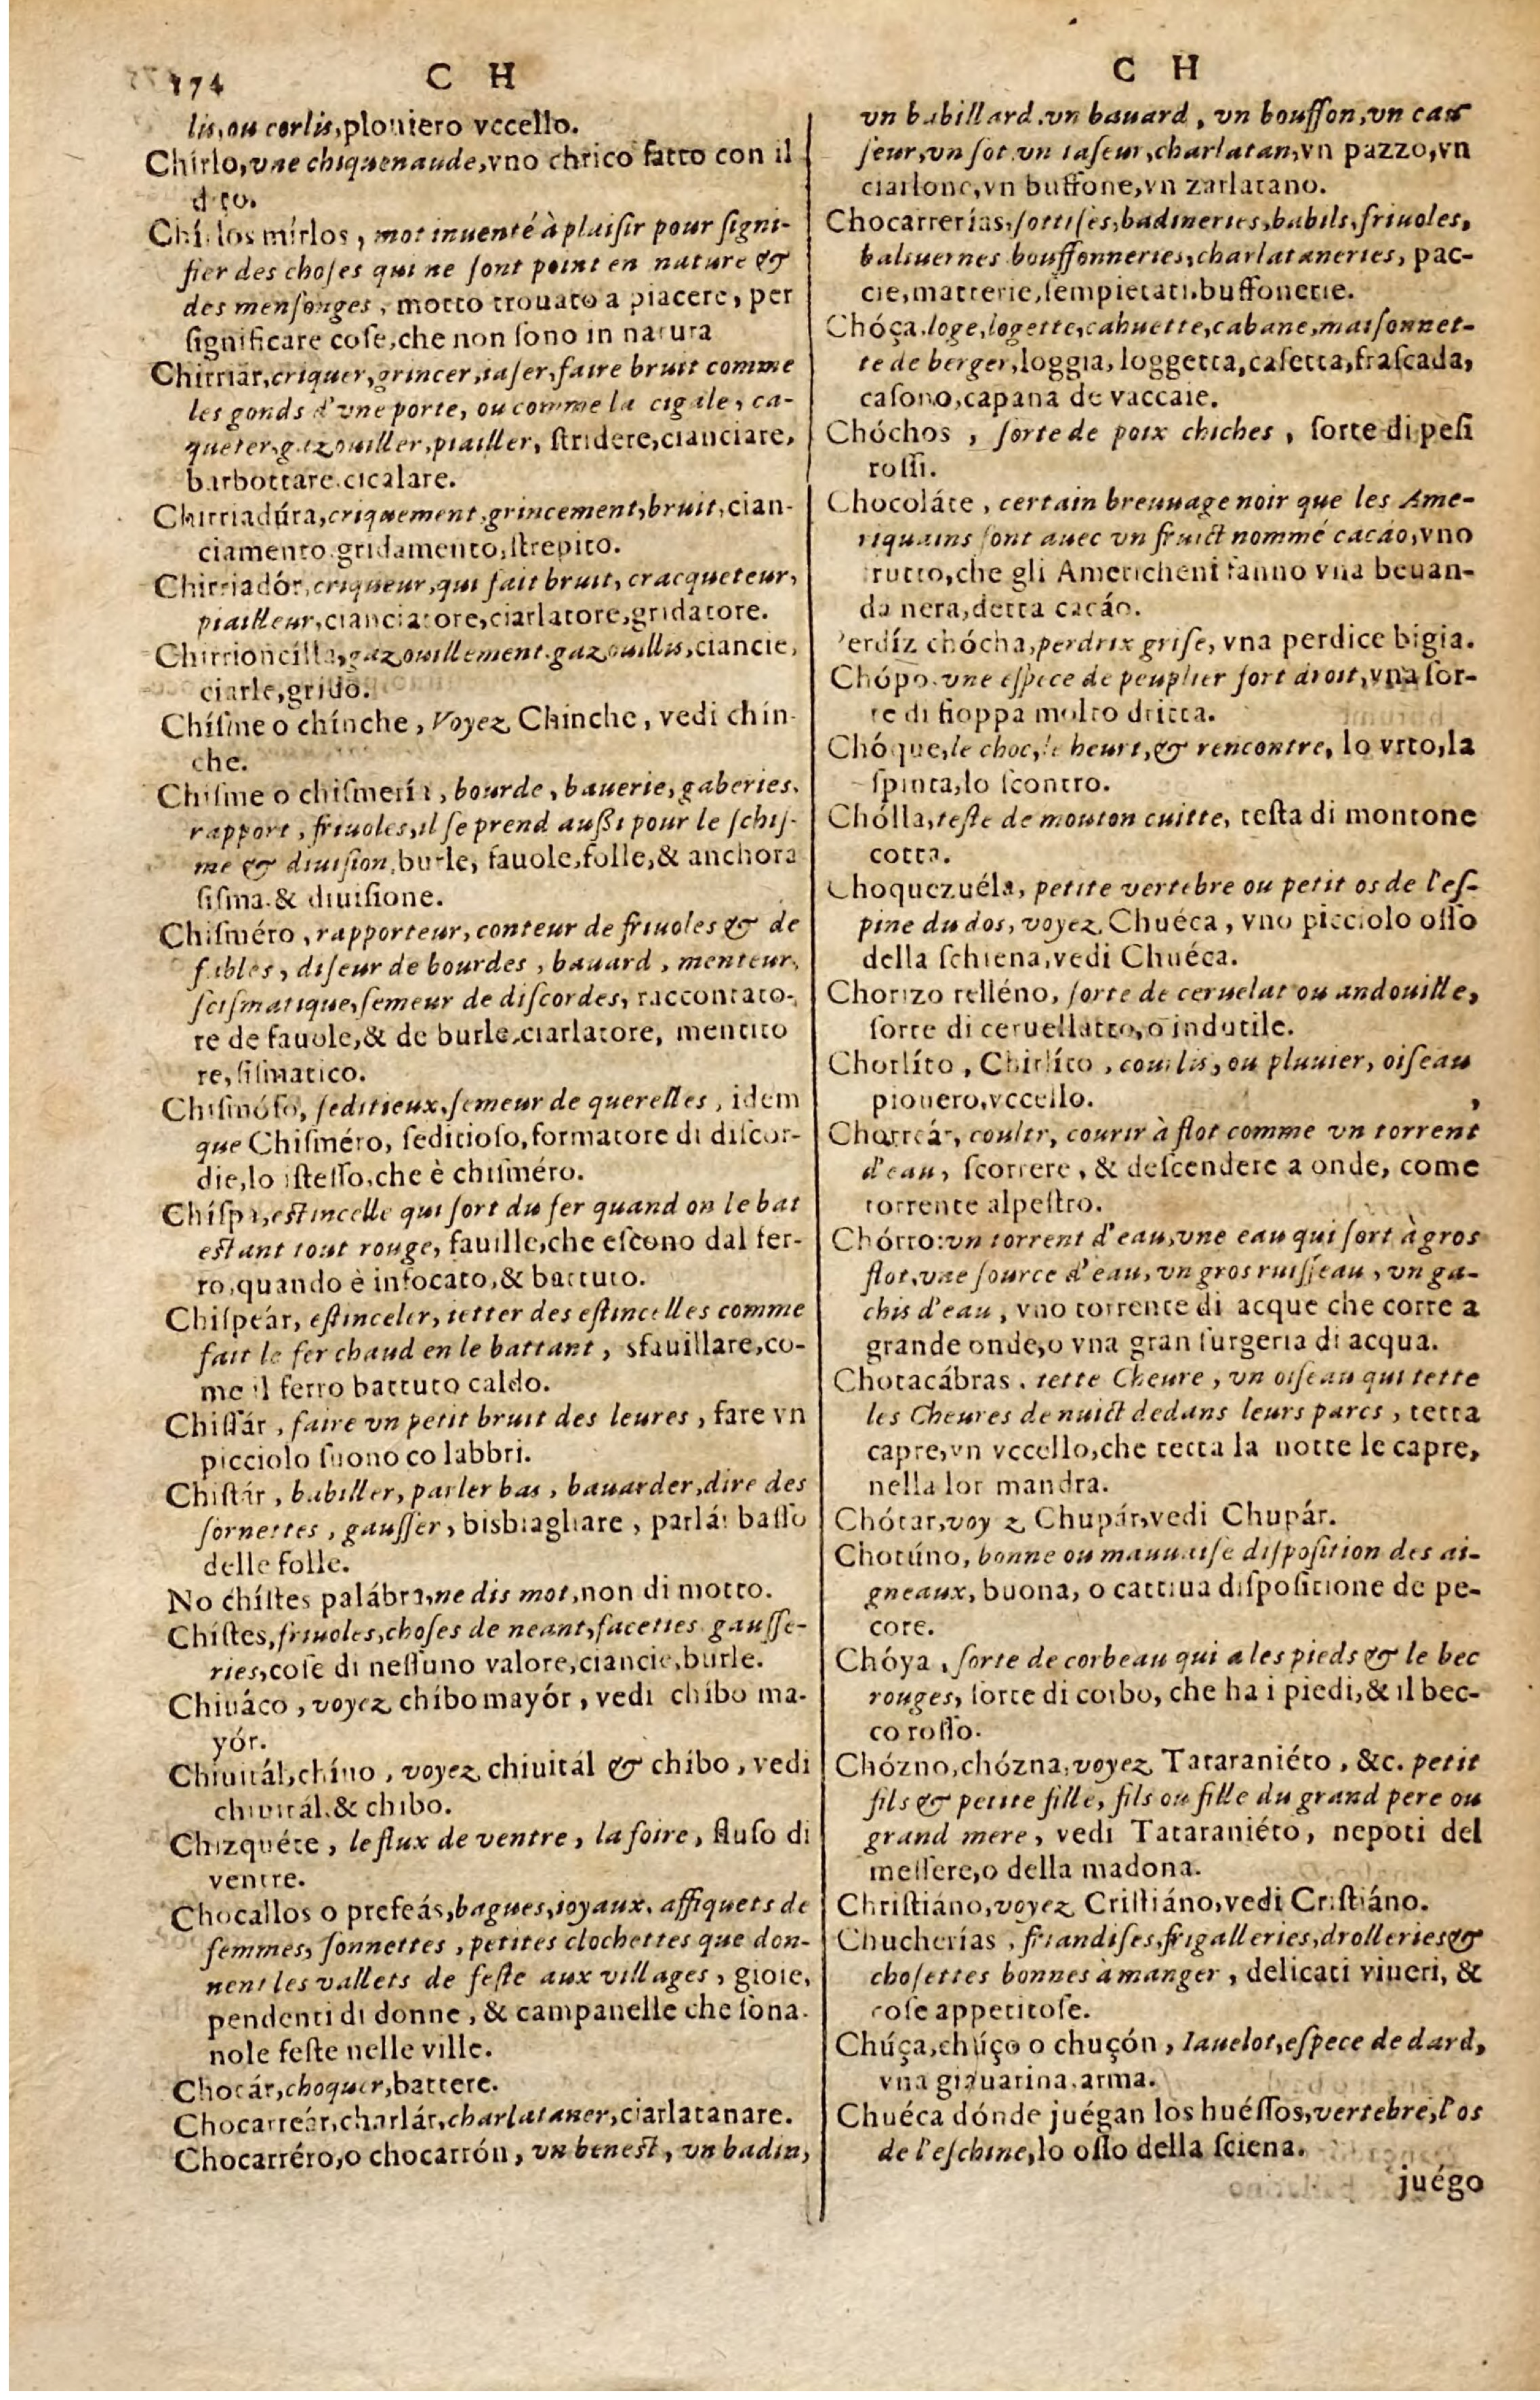 174
C H
lis, ou corlis, plouiero vccello.
Chírlo, vne chiquenaude, vno chrico fatto con il
Chí los mírlos, mot inuenté à plaisir pour signi-
fier des choſes qui ne ſont point en nature &
des menſonges, motto trouato a piacere, per
ſignificare coſe, che non ſono in natura
Chirriar, criquer, grincer, iaſer, faire bruit comme
les gonds d'vne porte, ou comme la cigale, ca-
queter, gazouiller, piailler, ſtridere, cianciare,
barbottare, cicalare.
Chirriadúra, criquement, grincement, bruit, cian-
ciamento, gridamento, ſtrepito.
Chirriadór, criqueur, qui fait bruit, cracqueteur,
piailleur, cianciatore, ciarlatore, gridatore.
Chirrioncílla, gazouillement, gazouillis, ciancie,
ciarle, grido.
Chíſme o chínche, Voyez Chinche, vedi chin-
che.
Chiſme o chiſmería, bourde, bauerie, gaberies,
rapport, friuoles, il ſe prend auſſi pour le ſchiſ-
me & diuiſion, burle, fauole, folle, & anchora
ſiſma, & diuiſione.
Chiſméro, rapporteur, conteur de friuoles & de
fables, diſeur de bourdes, bauard, menteur,
ſciſmatique, ſemeur de diſcordes, raccontato-
re de fauole, & de burle, ciarlatore, mentito
re, ſiſmatico.
Chiſmóſo, ſeditieux, ſemeur de querelles, idem
que Chiſméro, ſeditioſo, formatore di diſcor-
die, lo iſteſſo, che è chiſméro.
Chíſpa, estincelle qui ſort du fer quand on le bat
estant tout rouge, fauille, che eſcono dal fer-
ro, quando è infocato, & battuto.
Chiſpeár, eſtinceler, ietter des eſtincelles comme
fait le fer chaud en le battant, sfauillare, co-
me il ferro battuto caldo.
Chiſſár, faire vn petit bruit des leures, fare vn
picciolo ſuono co labbri.
Chiſtár, babiller, parler bas, bauarder, dire des
ſornettes, gauſſer, bisbiagliare, parlár baſſo
delle folle.
No chíſtes palábra, ne dis mot, non di motto.
Chíſtes, friuoles, choſes de neant, faceties gauſſe-
ries, coſe di neſſuno valore, ciancie, burle.
Chiuáco, voyez chíbo mayór, vedi chíbo ma-
yór.
Chiuitál, chíuo, voyez chiuitál & chíbo, vedi
chiuitál, & chibo.
Chizquéte, le flux de ventre, la foire, fluſo di
ventre.
Chocallos o prefeás, bagues, ioyaux, affiquets de
femmes, ſonnettes, petites clochettes que don-
nent les vallets de feſte aux villages, gioie,
pendenti di donne, & campanelle che ſona-
nole feſte nelle ville.
Chocár, choquer, battere.
Chocarreár, charlár, charlataner, ciarlatanare.
Chocarréro, o chocarrón, vn benest, vn badin,
C H
vn babillard, vn bauard, vn bouffon, vn cau
ſeur, vn ſot, vn iaſeur, charlatan, vn pazzo, vn
ciarlone, vn buffone, vn zarlatano.
Chocarrerías, ſottiſes, badineries, babils, friuoles,
baliuernes bouffonneries, charlataneries, pac-
cie, matterie, ſempietati, buffonerie.
Chóça, loge, logette, cahuette, cabane, maiſonnet-
te de berger, loggia, loggetta, caſetta, fraſcada,
caſono, capana de vaccaie.
Chóchos, ſorte de poix chiches, ſorte di peſi
roſſi.
Chocoláte, certain breuuage noir que les Ame-
riquains font auec vn fruict nommé cacáo, vno
frutto, che gli Americheni fanno vna beuan-
da nera, detta cacáo.
Perdíz chócha, perdrix griſe, vna perdice bigia.
Chópo, vne eſpece de peuplier fort droit, vna ſor-
te di fioppa molto dritta.
Chóque, le choc, le heurt, & rencontre, lo vrto, la
ſpinta, lo ſcontro.
Chólla, teſte de mouton cuitte, teſta di montone
cotta.
Choquezuéla, petite vertebre ou petit os de l'eſ-
pine du dos, voyez Chuéca, vno picciolo oſſo
della ſchiena, vedi Chuéca.
Chorizo relléno, ſorte de ceruelat ou andouille,
ſorte di ceruellatto, o indutile.
Chorlíto, Chirlíto, courlis, ou pluuier, oiſeau
piouero, vccello.
Chorreár, couler, courir à flot comme vn torrent
d'eau, ſcorrere, & deſcendere a onde, come
torrente alpeſtro.
Chórro: vn torrent d'eau, vne eau qui ſort à gros
flot, vne ſource d'eau, vn gros ruiſſeau, vn ga-
chis d'eau, vno torrente di acque che corre a
grande onde, o vna gran ſurgeria di acqua.
Chotacábras, tette Cheure, vn oiſeau qui tette
les Cheures de nuict dedans leurs parcs, tetta
capre, vn vccello, che tetta la notte le capre,
nella lor mandra.
Chótar, voyez Chupár, vedi Chupár.
Chotúno, bonne ou mauuaiſe diſpoſition des ai-
gneaux, buona, o cattiua diſpoſitione de pe-
core.
Chóya, ſorte de corbeau qui a les pieds & le bec
rouges, ſorte di corbo, che ha i piedi, & il bec-
co roſſo.
Chózno, chózna, voyez Tataraniéto, &c. petit
fils & petite fille, fils ou fille du grand pere ou
grand mere, vedi Tataraniéto, nepoti del
meſſere, o della madona.
Chriſtiáno, voyez Criſtiáno, vedi Criſtiáno.
Chucherías, friandiſes, frigalleries, drolleries &
choſettes bonnes à manger, delicati viueri, &
coſe appetitoſe.
Chúça, chúço o chuçón, Iauelot, eſpece de dard,
vna giauarina, arma.
Chuéca dónde juégan los huéſſos, vertebre, l'os
de l'eſchine, lo oſſo della ſciena.
juégo